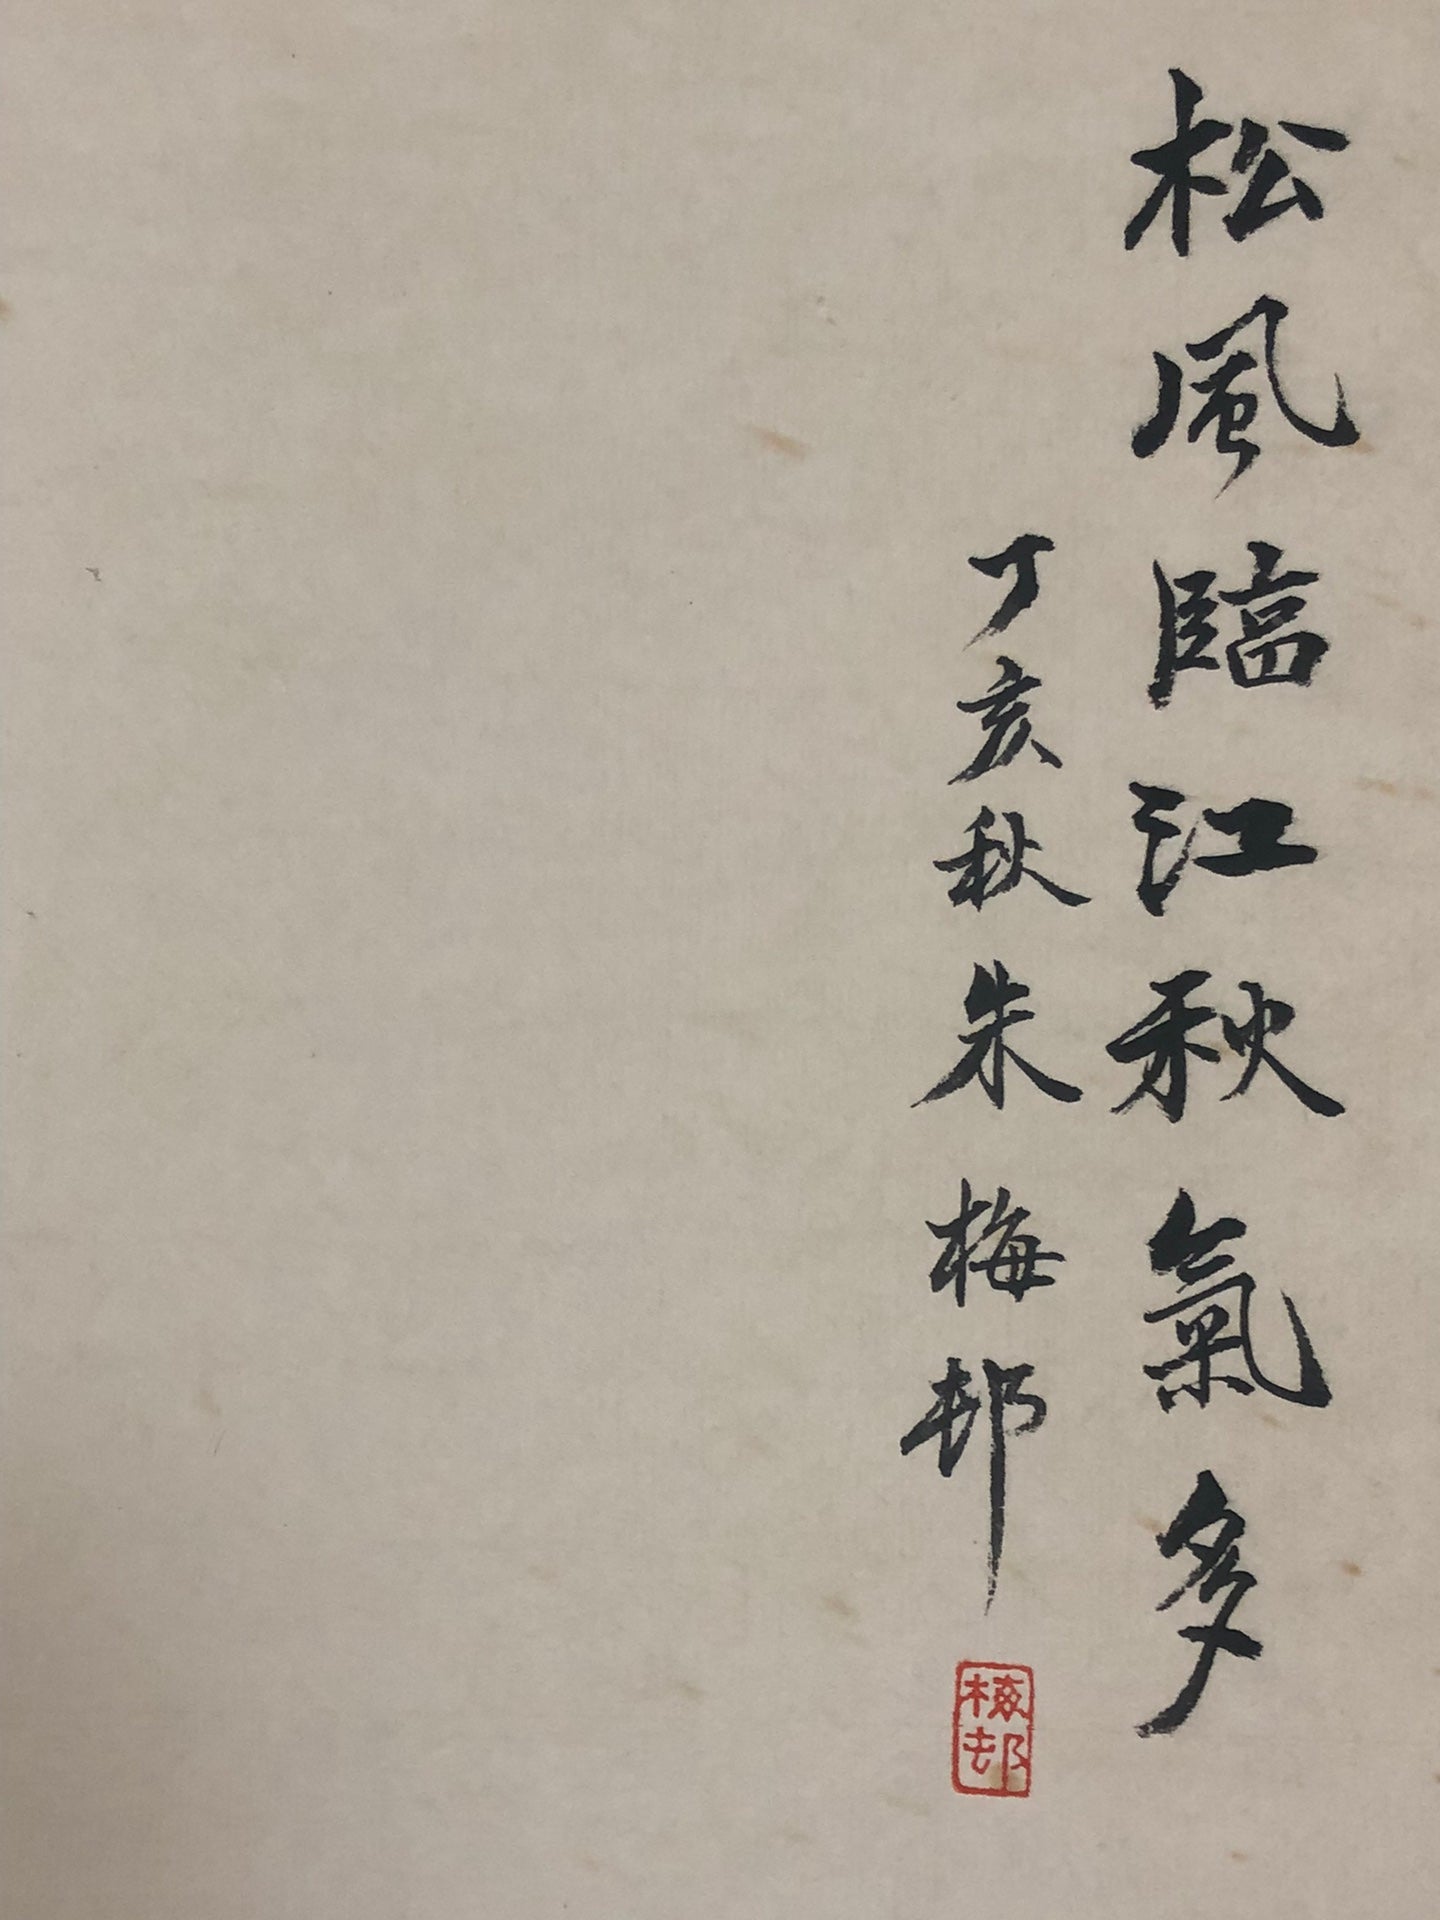 松風臨江秋氣多
丁亥秋朱梅邨
梅邨